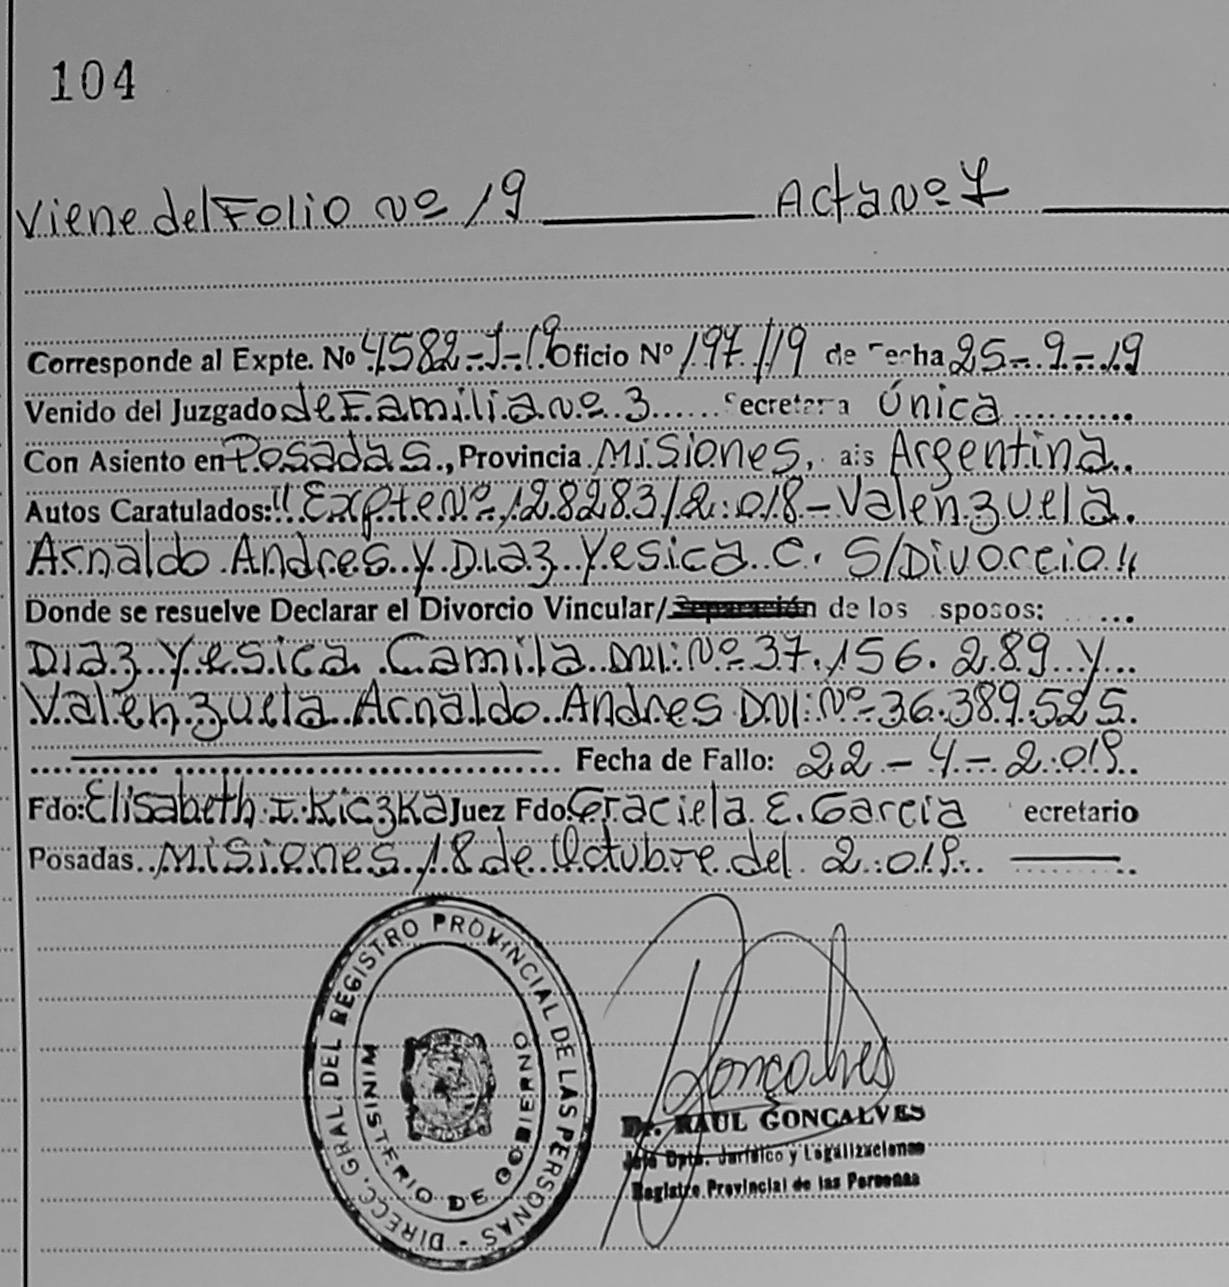 104
Viene del Folio Nº 19 Acta Nº 7
Corresponde al Expte. Nº 4582-J-19 Oficio Nº 197/19 de fecha 25-9-19
Venido del Juzgado de Familia Nº 3 Secretaria Única
Con Asiento en Posadas, Provincia Misiones, ais Argentina.
Autos Caratulados: "Expte Nº 128283/2.018 - Valenzuela
Arnaldo Andres y Diaz Yesica C. S/Divorcio"
Donde se resuelve Declarar el Divorcio Vincular/Separación de los sposos:
Diaz Yesica Camila DNI: Nº 37.156.289 y
Valenzuela Arnaldo Andres DNI: Nº 36.389.525.
Fecha de Fallo: 22-4-2.019.
Fdo: Elisabeth I. Kiczka Juez Fdo Graciela E. Garcia ecretario
Posadas Misiones, 18 de Octubre del 2.019.
DIRECC. GRAL. DEL REGISTRO PROVINCIAL DE LAS PERSONAS -
MINISTERIO DE GOBIERNO
Goncalves
Dr. RAUL GONCALVES
Jefe Dpto. Jurídico y Legalizaciones
Registro Provincial de las Personas